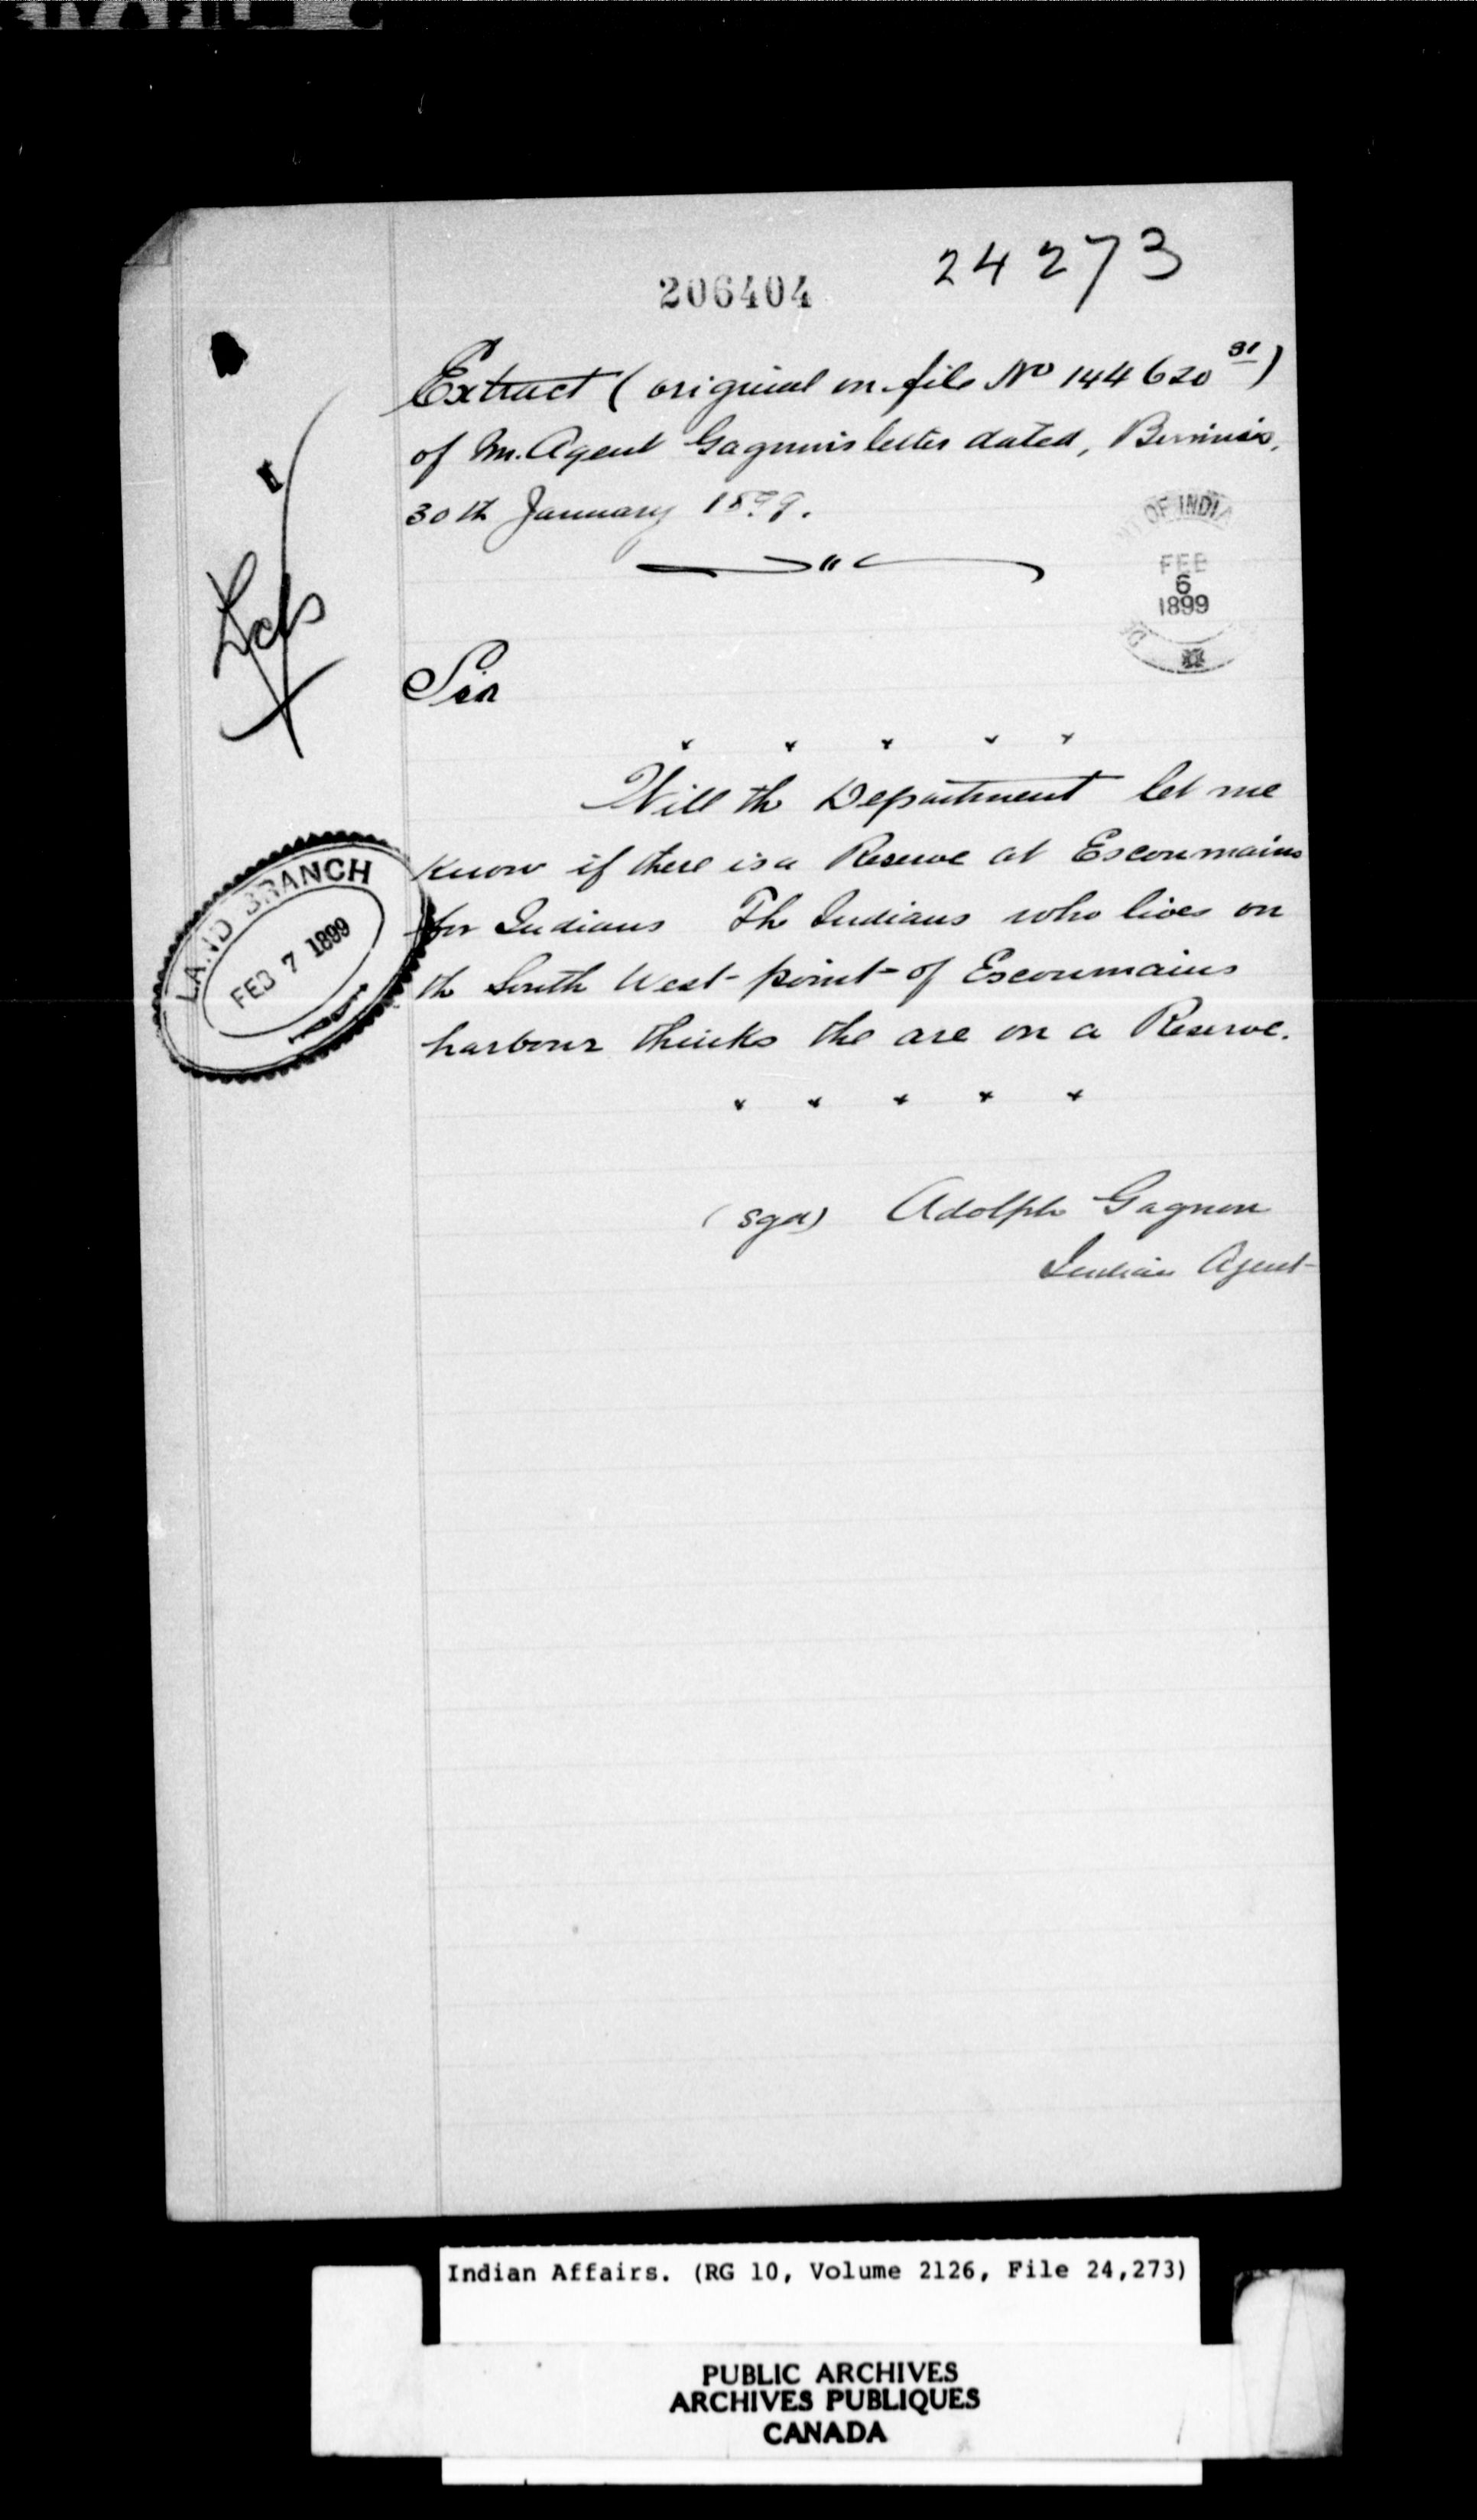 24273
206404
Extract (original on file No 144620 31)
of Mr. Agent Gagnon's letter dated, Bersimis,
30th January 1899.
OF INDIA
FEB
6
1899
Sir
x x x x x
Will th Department let me
know if there is a Reserve at Escoumains
for Indians Th Indians who lives on
th South West point of Escoumains
harbour thinks the are on a Reserve.
x x x x x
(sgd) Adolph Gagnon
Indian Agent
LAND BRANCH
FEB 7 1899
Indian Affairs. (RG 10, Volume 2126, File 24,273)
PUBLIC ARCHIVES
ARCHIVES PUBLIQUES
CANADA